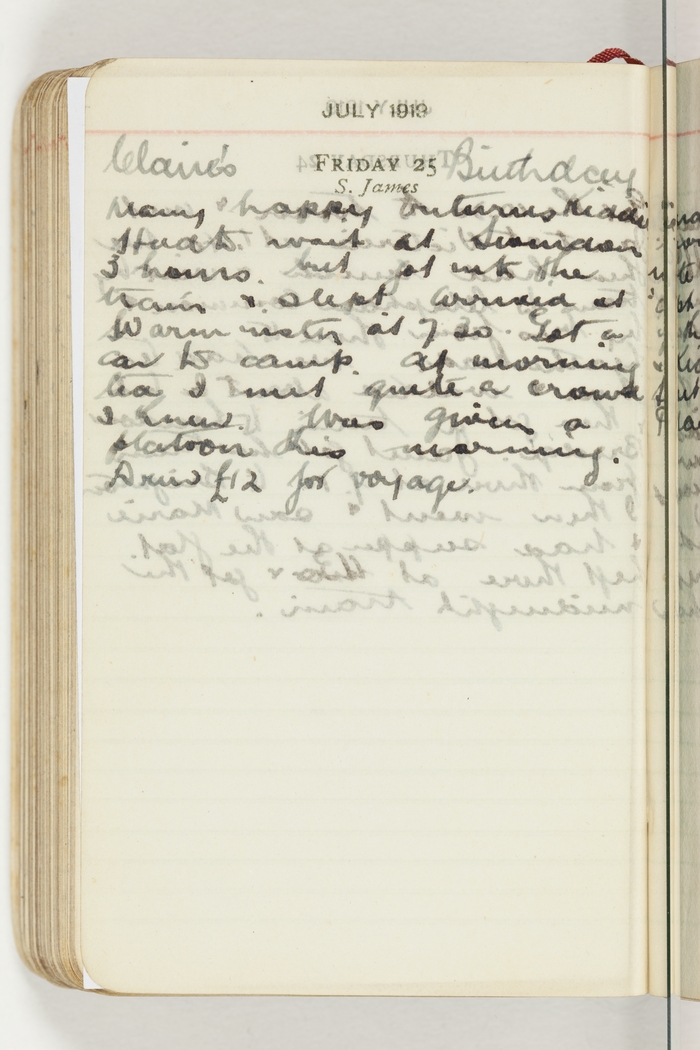 JULY 1919
Claire's FRIDAY 25 Birthday
S. James
Many happy returns Kiddi
Had to wait at Swindon
3 hours. but got into the
train & slept arrived at
Warminster at 7 30. Got a
car to camp. At morning
tea I met quite a crowd
I knew. Was given a
platoon this morning.
Drew £12 for voyage.